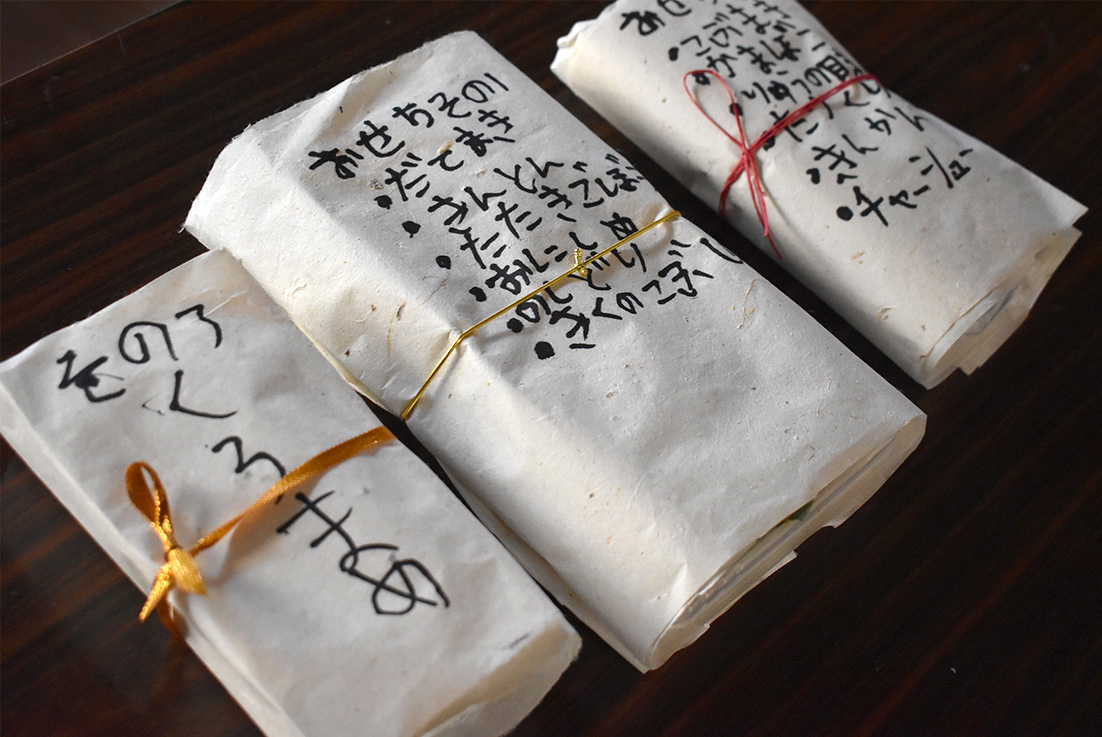 その3
くろまめ
おせちその1
・だてまき
・きんとん
・たたきごぼう
・おにしめ
・のしどり
・きくのこぼし
おせち
・こぶまき
・かまぼこ
・りゅうの目
・きんかん
・チャーシュー